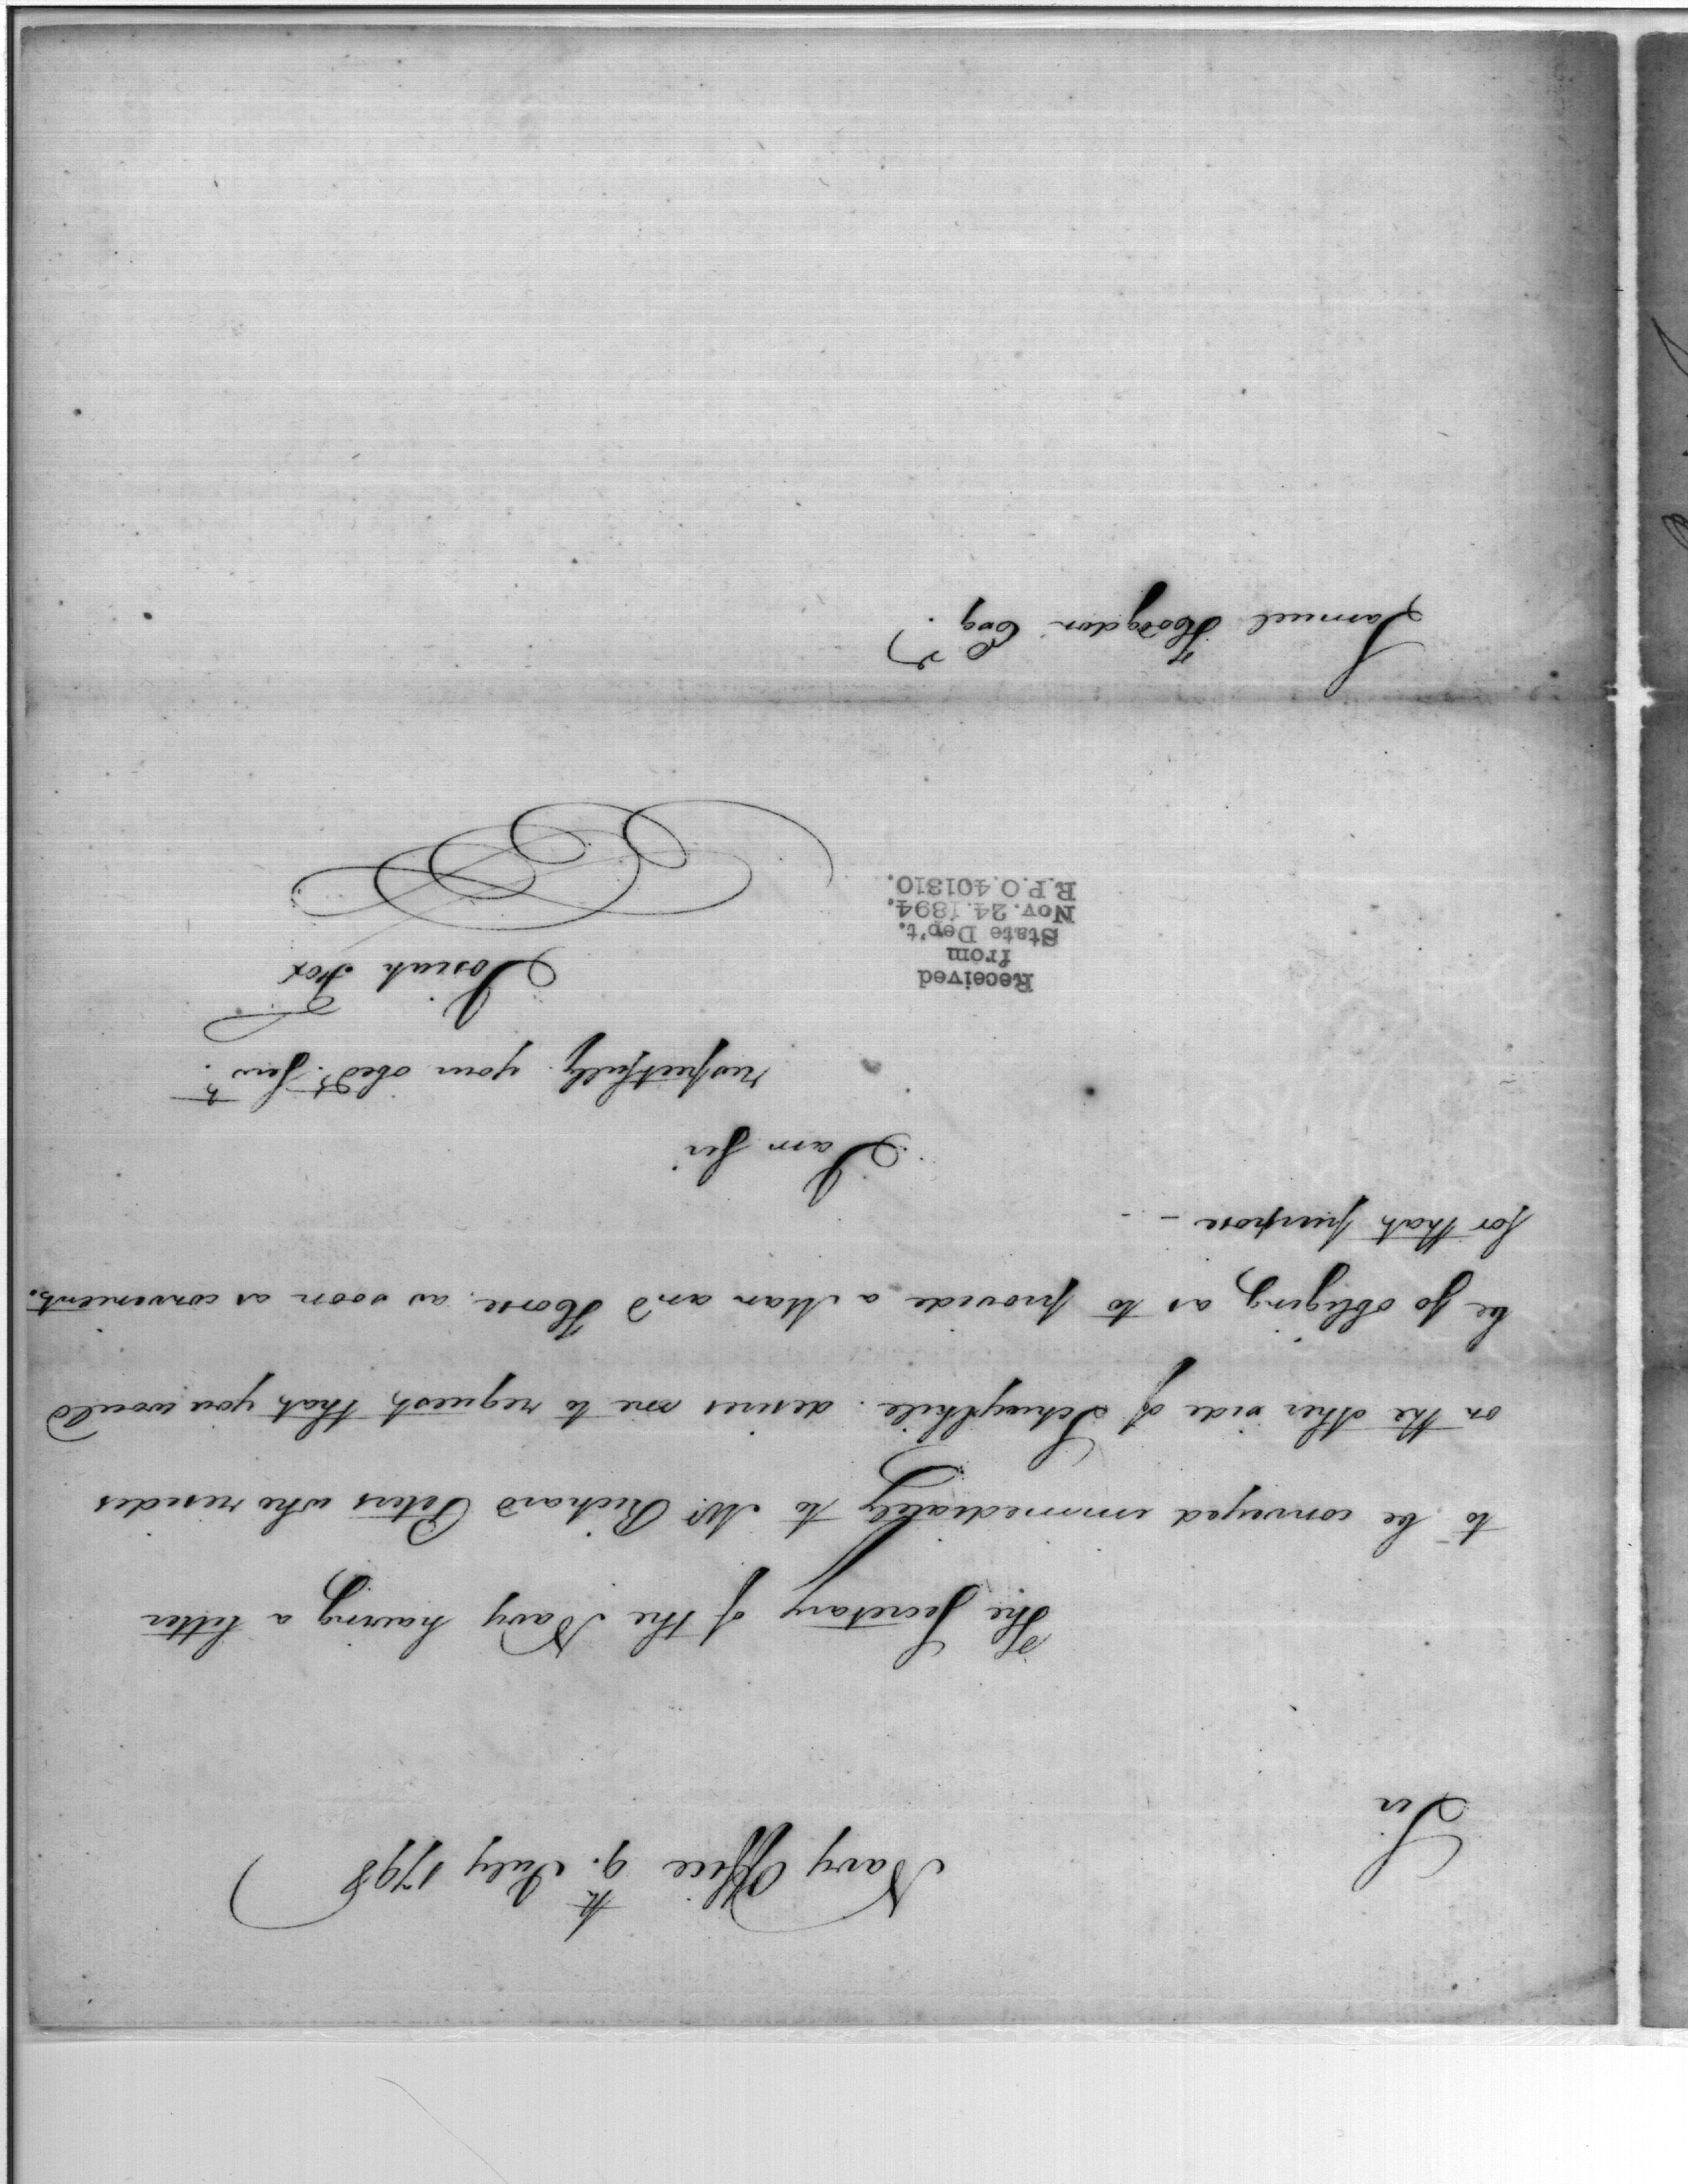 Navy Office 9th July 1798
Sir
The Secretary of the Navy having a letter
to be conveyed immediately to Mr. Richard Peters who resides
on the other side of Schuylkile. desires me to request that you would
be so obliging as to provide a Man and Horse as soon as convenient.
for that purpose -
I am Sir
respectfully your obedt. Servt.
Josiah Fox
Received
from
State Dep't.
Nov. 24. 1894.
R.P.O. 401310.
Samuel Hodgdon Esq.